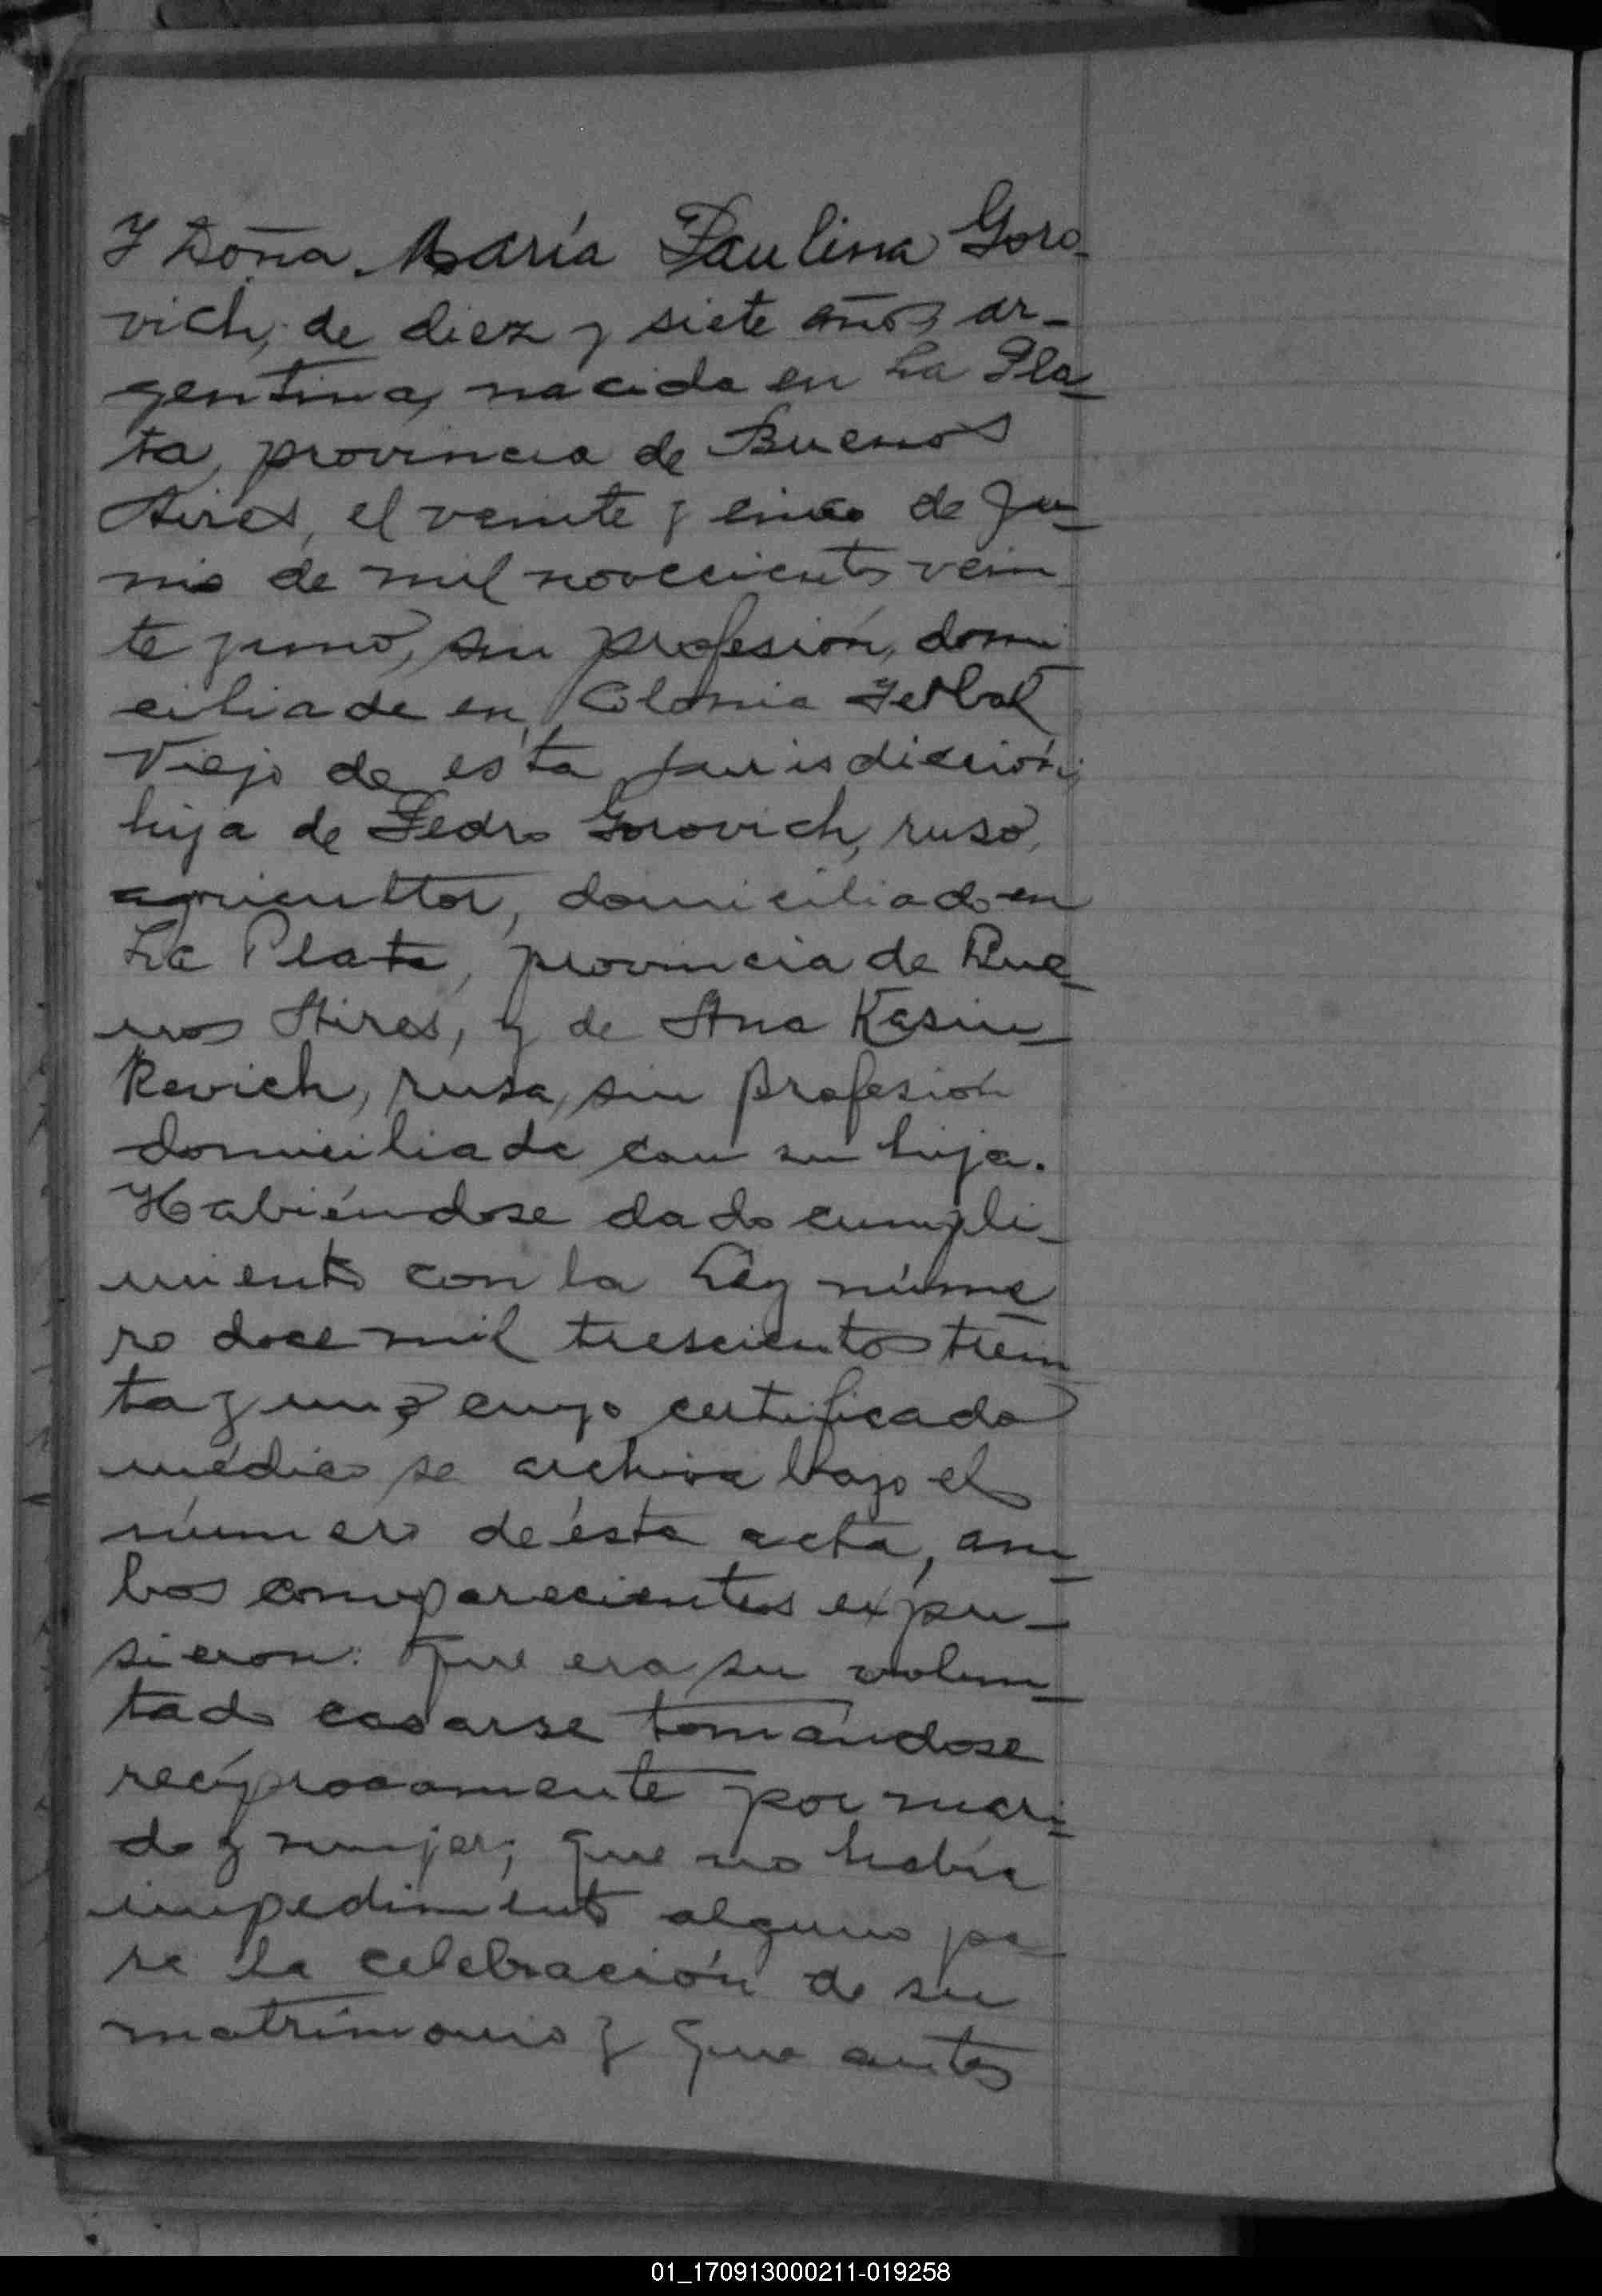 Y Doña María Paulina Goro-
vich, de diez y siete años, ar-
gentina, nacida en La Pla-
ta, provincia de Buenos
Aires, el veinte y cinco de Ju-
nio de mil novecientos vein
te y uno, sin profesión, domi
ciliada en Colonia Yerbal
Viejo de ésta jurisdicción;
hija de Pedro Gorovich, ruso,
agricultor, domiciliado en
La Plata, provincia de Bue-
nos Aires, y de Ana Kasin-
kevich, rusa, sin profesión
domiciliada con su hija.
Habiéndose dado cumpli-
miento con la Ley núme
ro doce mil trescientos trein
ta y uno, cuyo certificado
médico se archiva bajo el
número de ésta acta, am-
bos comparecientes expu-
sieron: que era su volun-
tad casarse tomándose
recíprocamente por mari-
do y mujer; que no había
impedimento alguno pa
ra la celebración de su
matrimonio y que antes
01_170913000211-019258